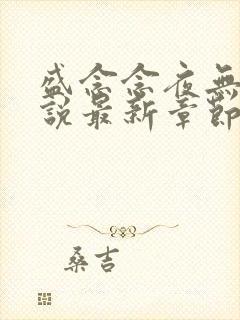 盛念念夜無
說最新章節
桑吉